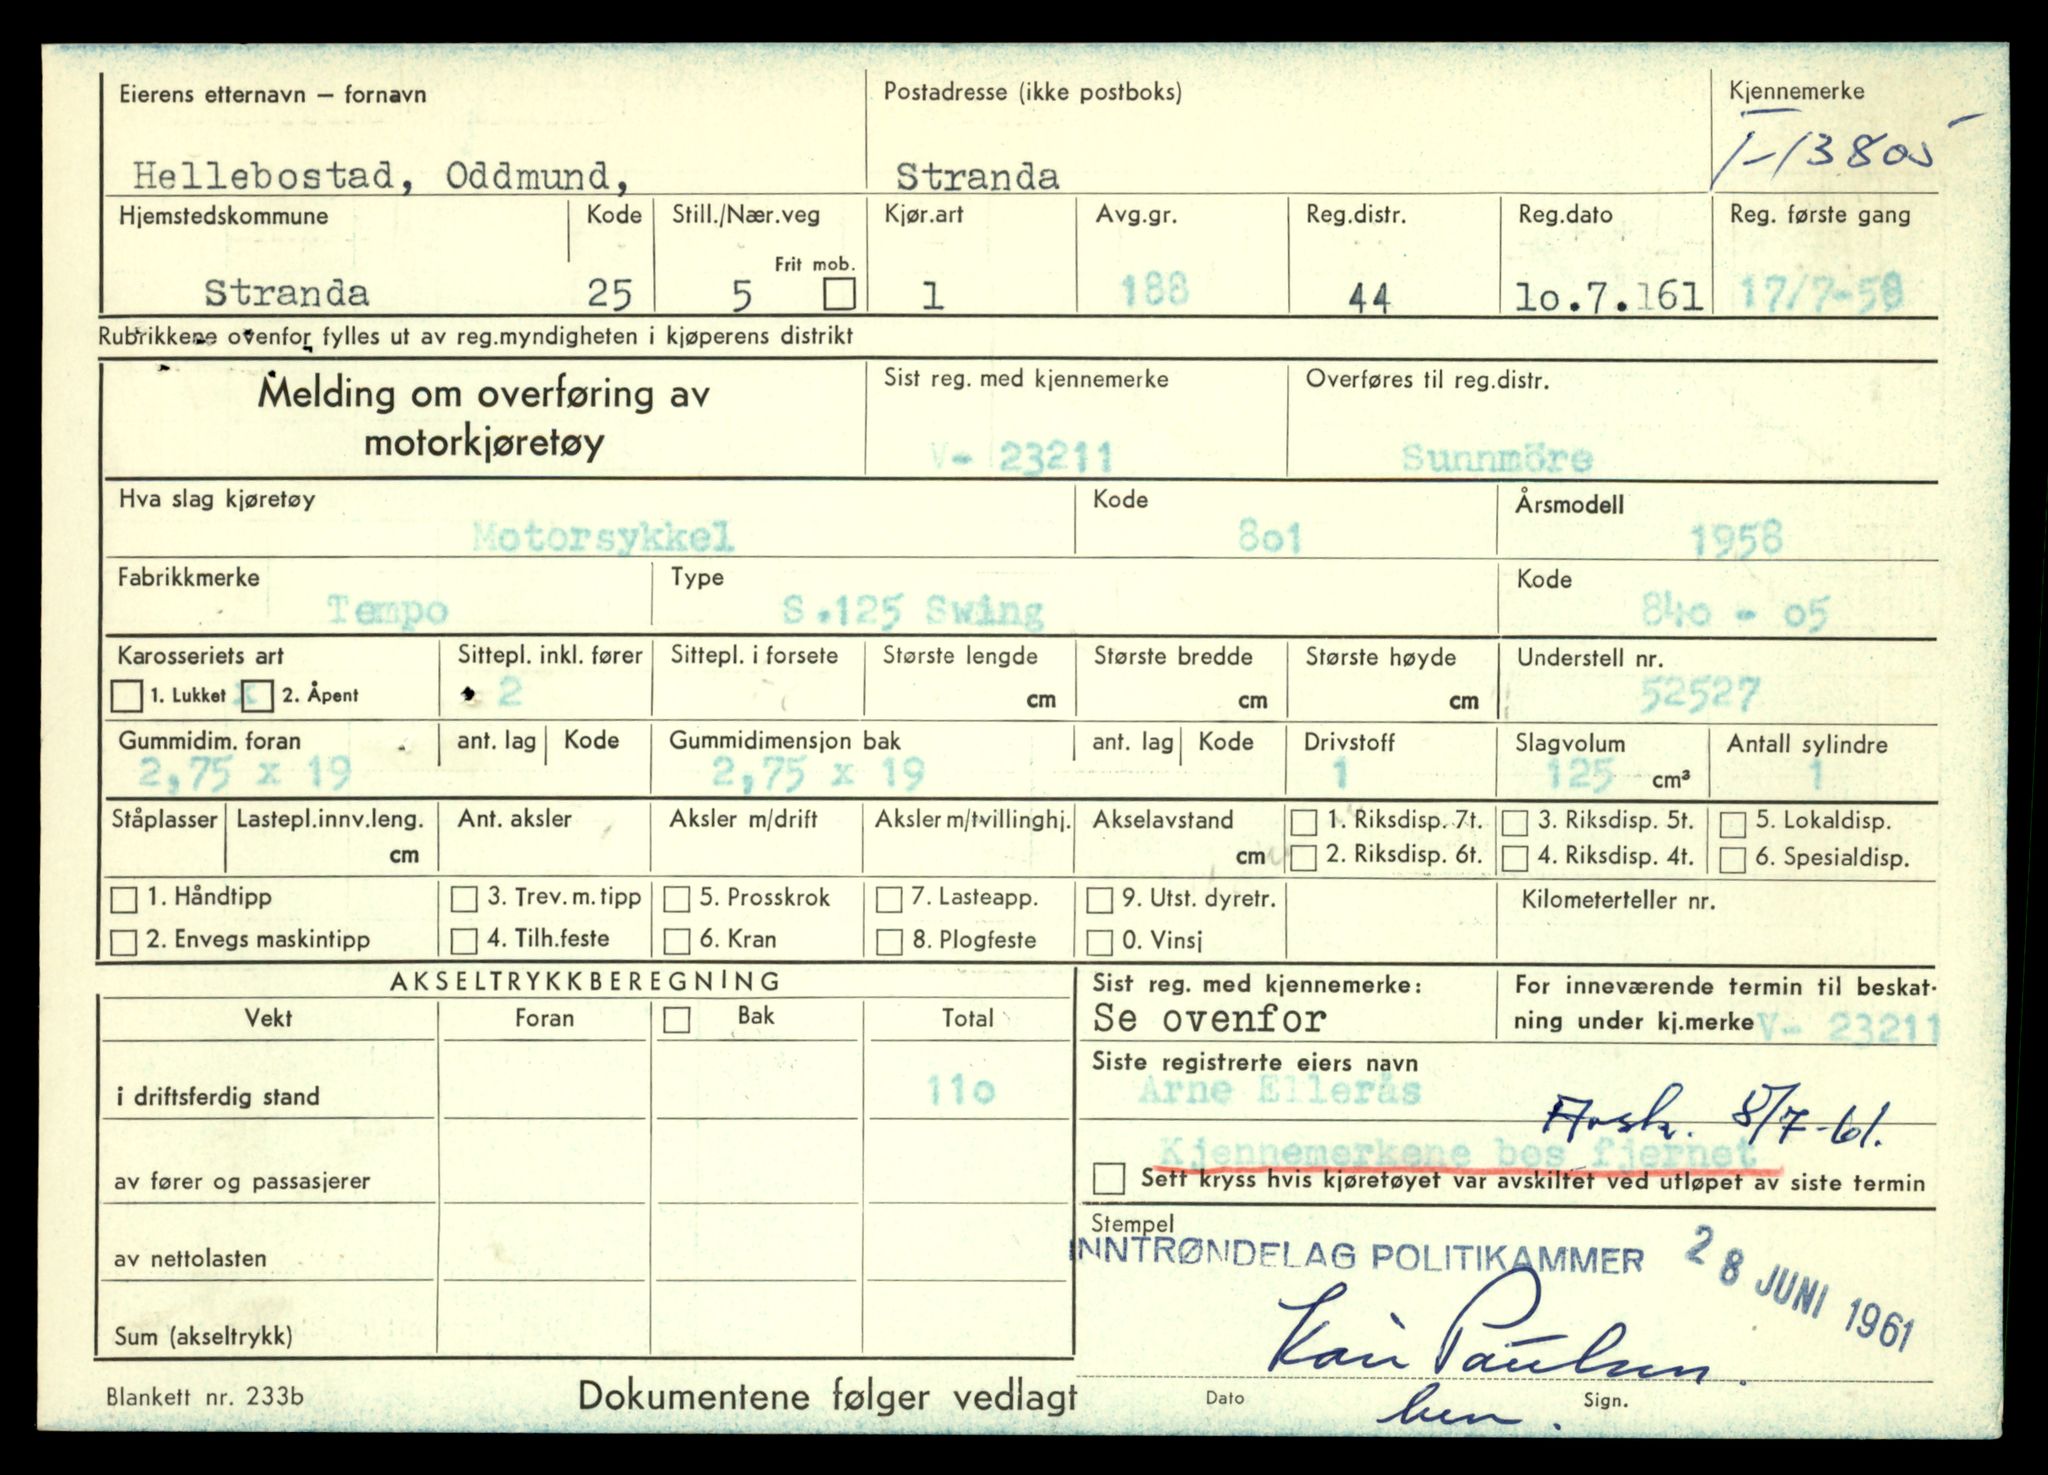 Eierens etternavn – fornavn Postadresse (ikke postboks) Kjennemerke
Hellebostad, Oddmund, Stranda T-13805
Hjemstedskommune Kode Still./Nær.veg Kjør.art Avg.gr. Reg.distr. Reg.dato Reg. første gang
Frit mob.
Stranda 25 5 1 188 44 10.7.161 17/7-58
Rubrikkene ovenfor fylles ut av reg.myndigheten i kjøperens distrikt
Melding om overføring av Sist reg. med kjennemerke Overføres til reg.distr.
motorkjøretøy V- 23211 Sunnmöre
Hva slag kjøretøy Kode Årsmodell
Motorsykkel 8o1 1958
Fabrikkmerke Type Kode
Tempo S.125 Swing 84o - o5
Karosseriets art Sittepl. inkl. fører Sittepl. i forsete Største lengde Største bredde Største høyde Understell nr.
1. Lukket x 2. Åpent 2 cm cm cm 52527
Gummidim. foran ant. lag Kode Gummidimensjon bak ant. lag Kode Drivstoff Slagvolum Antall sylindre
2,75 x 19 2,75 x 19 1 125 cm³ 1
Ståplasser Lastepl.innv.leng. Ant. aksler Aksler m/drift Aksler m/tvillinghj. Akselavstand 1. Riksdisp. 7t. 3. Riksdisp. 5t. 5. Lokaldisp.
cm cm 2. Riksdisp. 6t. 4. Riksdisp. 4t. 6. Spesialdisp.
1. Håndtipp 3. Trev. m. tipp 5. Prosskrok 7. Lasteapp. 9. Utst. dyretr. Kilometerteller nr.
2. Envegs maskintipp 4. Tilh.feste 6. Kran 8. Plogfeste 0. Vinsj
AKSELTRYKKBEREGNING Sist reg. med kjennemerke: For inneværende termin til beskat-
Vekt Foran Bak Total Se ovenfor ning under kj.merke V- 23211
Siste registrerte eiers navn
i driftsferdig stand 11o Arne Ellerås
Avsk. 8/7-61.
Kjennemerkene bes fjernet
av fører og passasjerer Sett kryss hvis kjøretøyet var avskiltet ved utløpet av siste termin
Stempel
av nettolasten INNTRØNDELAG POLITIKAMMER 28 JUNI 1961
Sum (akseltrykk) Kari Paulsen
Blankett nr. 233b Dokumentene følger vedlagt Dato Sign.